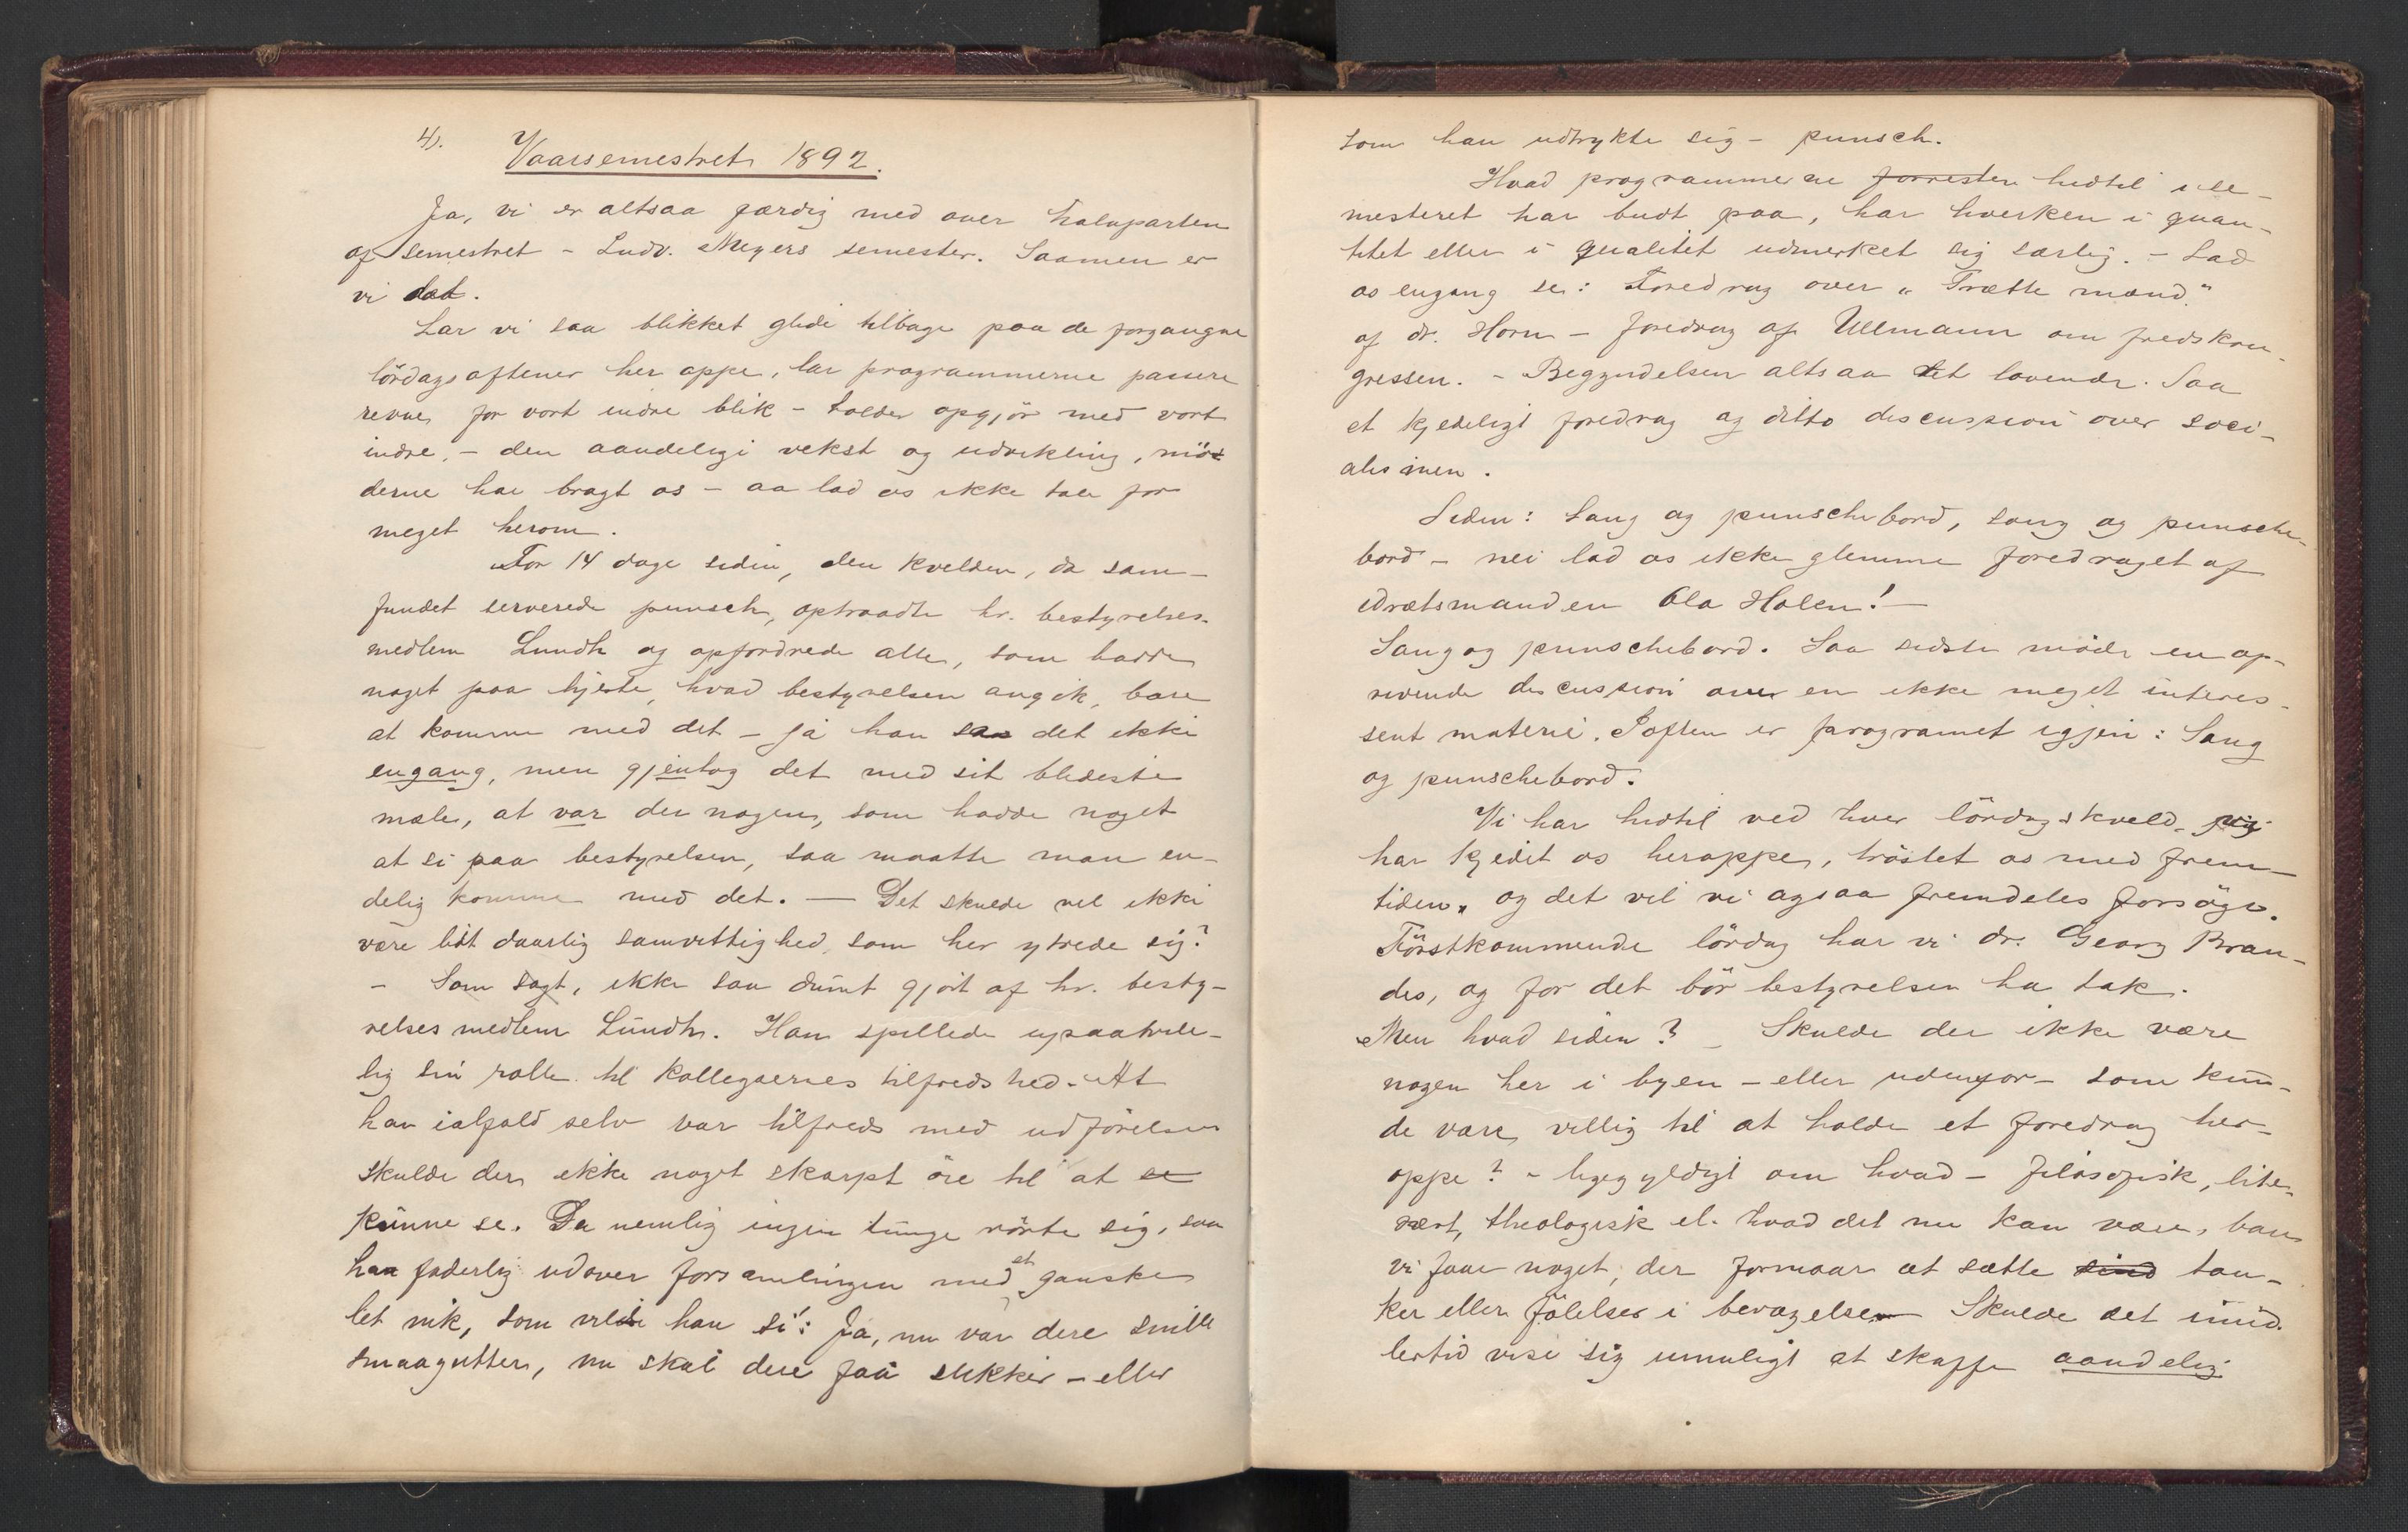 4).
Vaarsemestret 1892.
Ja, vi er altsaa færdig med over halvparten
af semestret - Ludv. Meyers semester. Saamen er
vi det.
Lar vi saa blikket glide tilbage paa de forgangne
lördagsaftener her oppe, lar programmerne passere
revue for vort indre blik - holder opgjör med vort
indre, - den aandelige vekst og udvikling, mö-
derne har bragt os - aa lad os ikke tale for
meget herom.
For 14 dage siden, den kvelden, da sam-
fundet serverede punsch, optraadte hr. bestyrelses-
medlem Lundh og opfordrede alle, som hadde
noget paa hjerte, hvad bestyrelsen angik, bare
at komme med det - ja han sa det ikke
engang, men gjentog det med sit blideste
mæle, at var der nogen, som hadde noget
at si paa bestyrelsen, saa maatte man en-
delig komme med det. — Det skulde vel ikke
være lidt daarlig samvittighed, som her ytrede sig?
- Som sagt, ikke saa dumt gjort af hr. besty-
relsesmedlem Lundh. Han spillede upaatvile-
lig sin rolle til kollegaernes tilfredshed. At
han ialfald selv var tilfreds med udförelsen
skulde der ikke noget skarpt öie til at se
kunne se. Da nemlig ingen tunge rörte sig, saa
han faderlig udover forsamlingen med et ganske
let nik, som vilde han si: Ja, nu var dere snille
smaagutter, nu skal dere faa slikker - eller
som han udtrykte sig - punsch.
Hvad programmerne forresten hidtil i se-
mesteret har budt paa, har hverken i quan-
titet eller i qualitet udmerket sig særlig. - Lad
os engang se: Foredrag over "Trætte mænd"
af dr. Horn - foredrag af Ullmann om fredskon-
gressen. - Begyndelsen altsaa let lovende. Saa
et kjedeligt foredrag og ditto discussion over soci-
alismen.
Siden: Sang og punschebord, sang og punsche-
bord - nei lad os ikke glemme foredraget af
idrætsmanden Ola Holen! —
Sang og punschebord. Saa sidste möde en op-
rivende discussion over en ikke meget interes-
sent materie. Iaften er programet igjen: Sang
og punschebord.
Vi har hidtil ved hver lördagskveld, vi
har kjedet os heroppe, tröstet os med frem-
tiden, og det vil vi ogsaa fremdeles forsöge.
Förstkommende lördag har vi dr. Georg Bran-
des, og for det bör bestyrelsen ha tak.
Men hvad siden? - Skulde der ikke være
nogen her i byen - eller udenfor - som kun-
de være villig til at holde et foredrag her-
oppe? - ligegyldigt om hvad - filosofisk, lite-
rært, theologisk el. hvad det nu kan være, bare
vi faar noget, der formaar at sætte sind tan-
ker eller fölelser i bevægelse. Skulde det imid-
lertid vise sig umuligt at skaffe aandelig